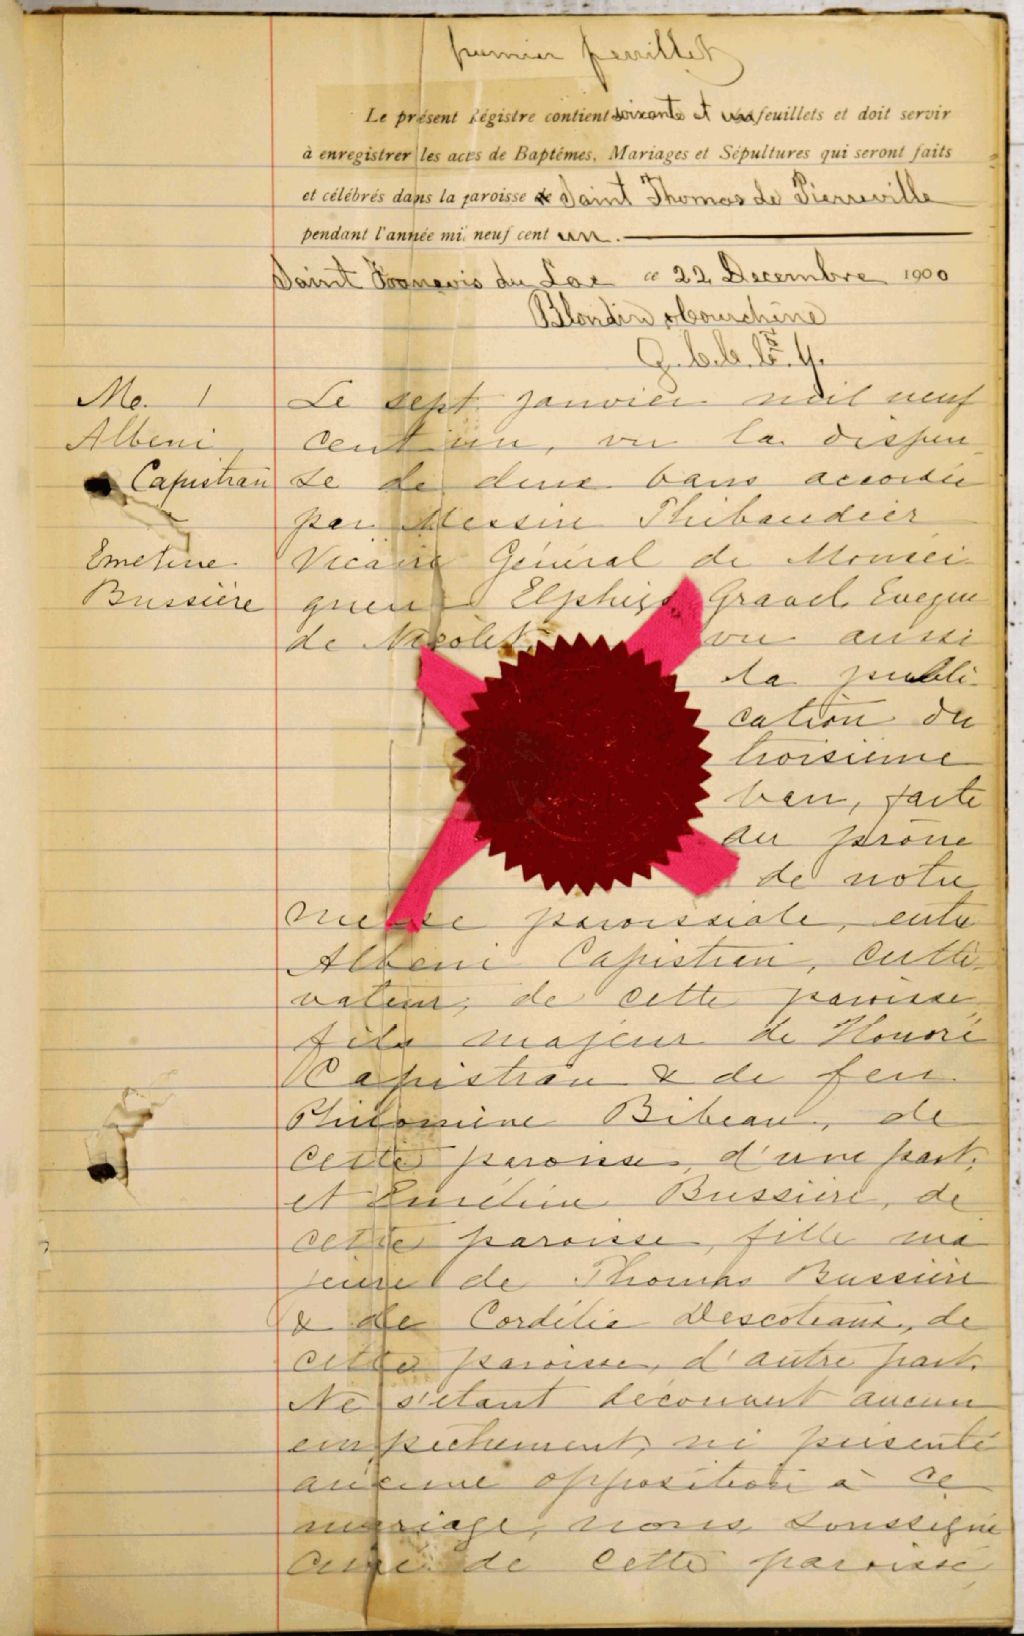 premier feuillet
Le présent Régistre contient soixante et un feuillets et doit servir
à enregistrer les actes de Baptêmes, Mariages et Sépultures qui seront faits
et célébrés dans la paroisse de Saint Thomas de Pierreville
pendant l'année mil neuf cent un.
Saint François du Lac ce 22 Decembre 1900
Blondin & Courchêne
M. 1
Albeni
Capistran
Emeline
Bussière
Le sept janvier mil neuf
cent un, vu la dispen
se de deux bans accordée
par Messire Thibaudier
Vicaire Général de Monsei
gneur Elphège Gravel Evêque
de Nicolet, vu aussi
la publi-
cation du
troisième
ban, faite
au prône
de notre
messe paroissiale, entre
Albeni Capistran, culti-
vateur, de cette paroisse,
fils majeur de Honoré
Capistran & de feu
Philomène Bibeau, de
cette paroisse, d'une part,
et Emeline Bussière, de
cette paroisse, fille ma
jeure de Thomas Bussière
& de Cordélie Descoteaux, de
cette paroisse, d'autre part.
Ne s'étant découvert aucun
empêchement, ni présenté
aucune opposition à ce
mariage, nous soussigné
curé de cette paroisse,